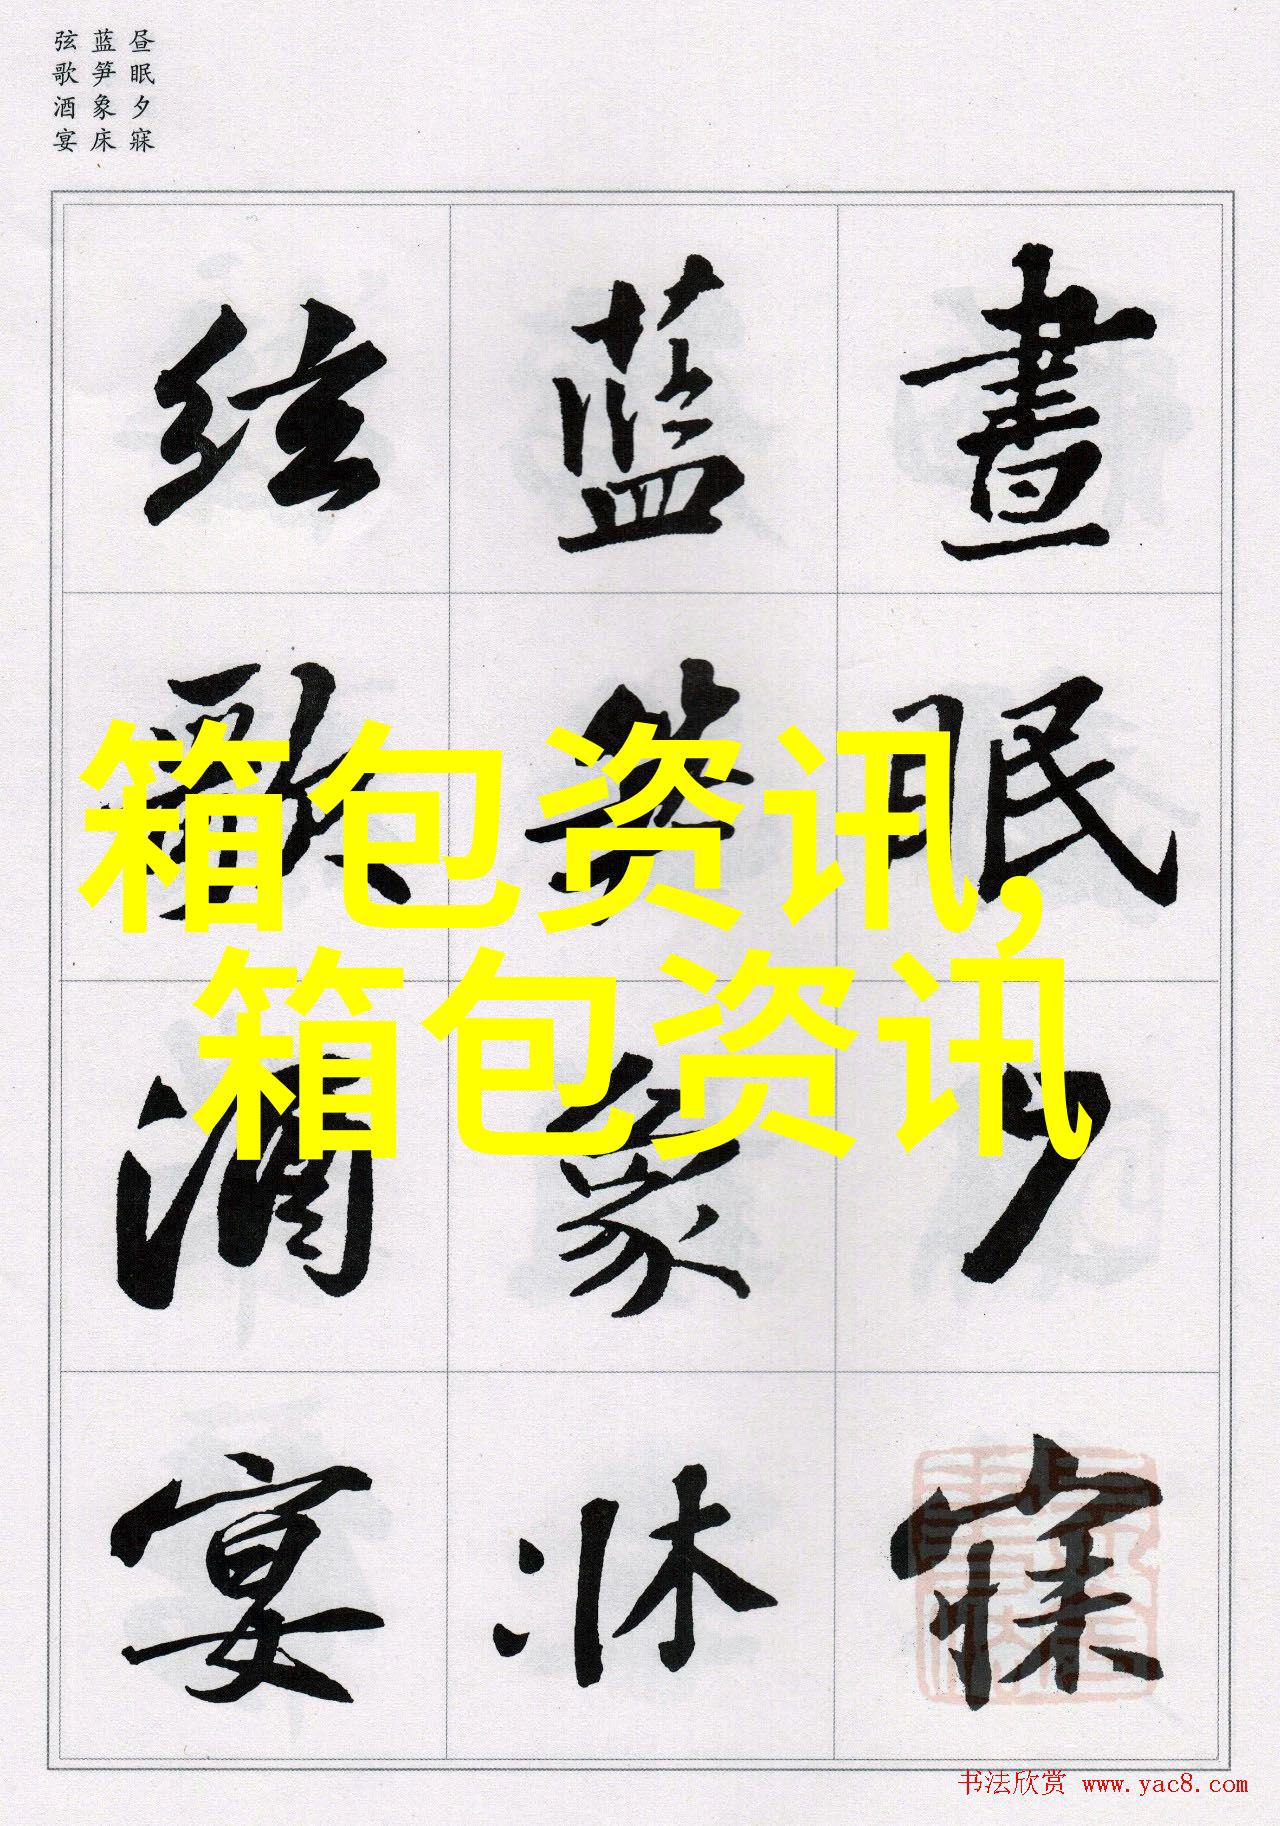 昼眠夕寐
蓝笋象床
弦歌酒宴
晝眠夕寐
蓝笋象牀
弦歌酒宴
箱包资讯,
箱包资讯
书法欣赏 www.yac8.com